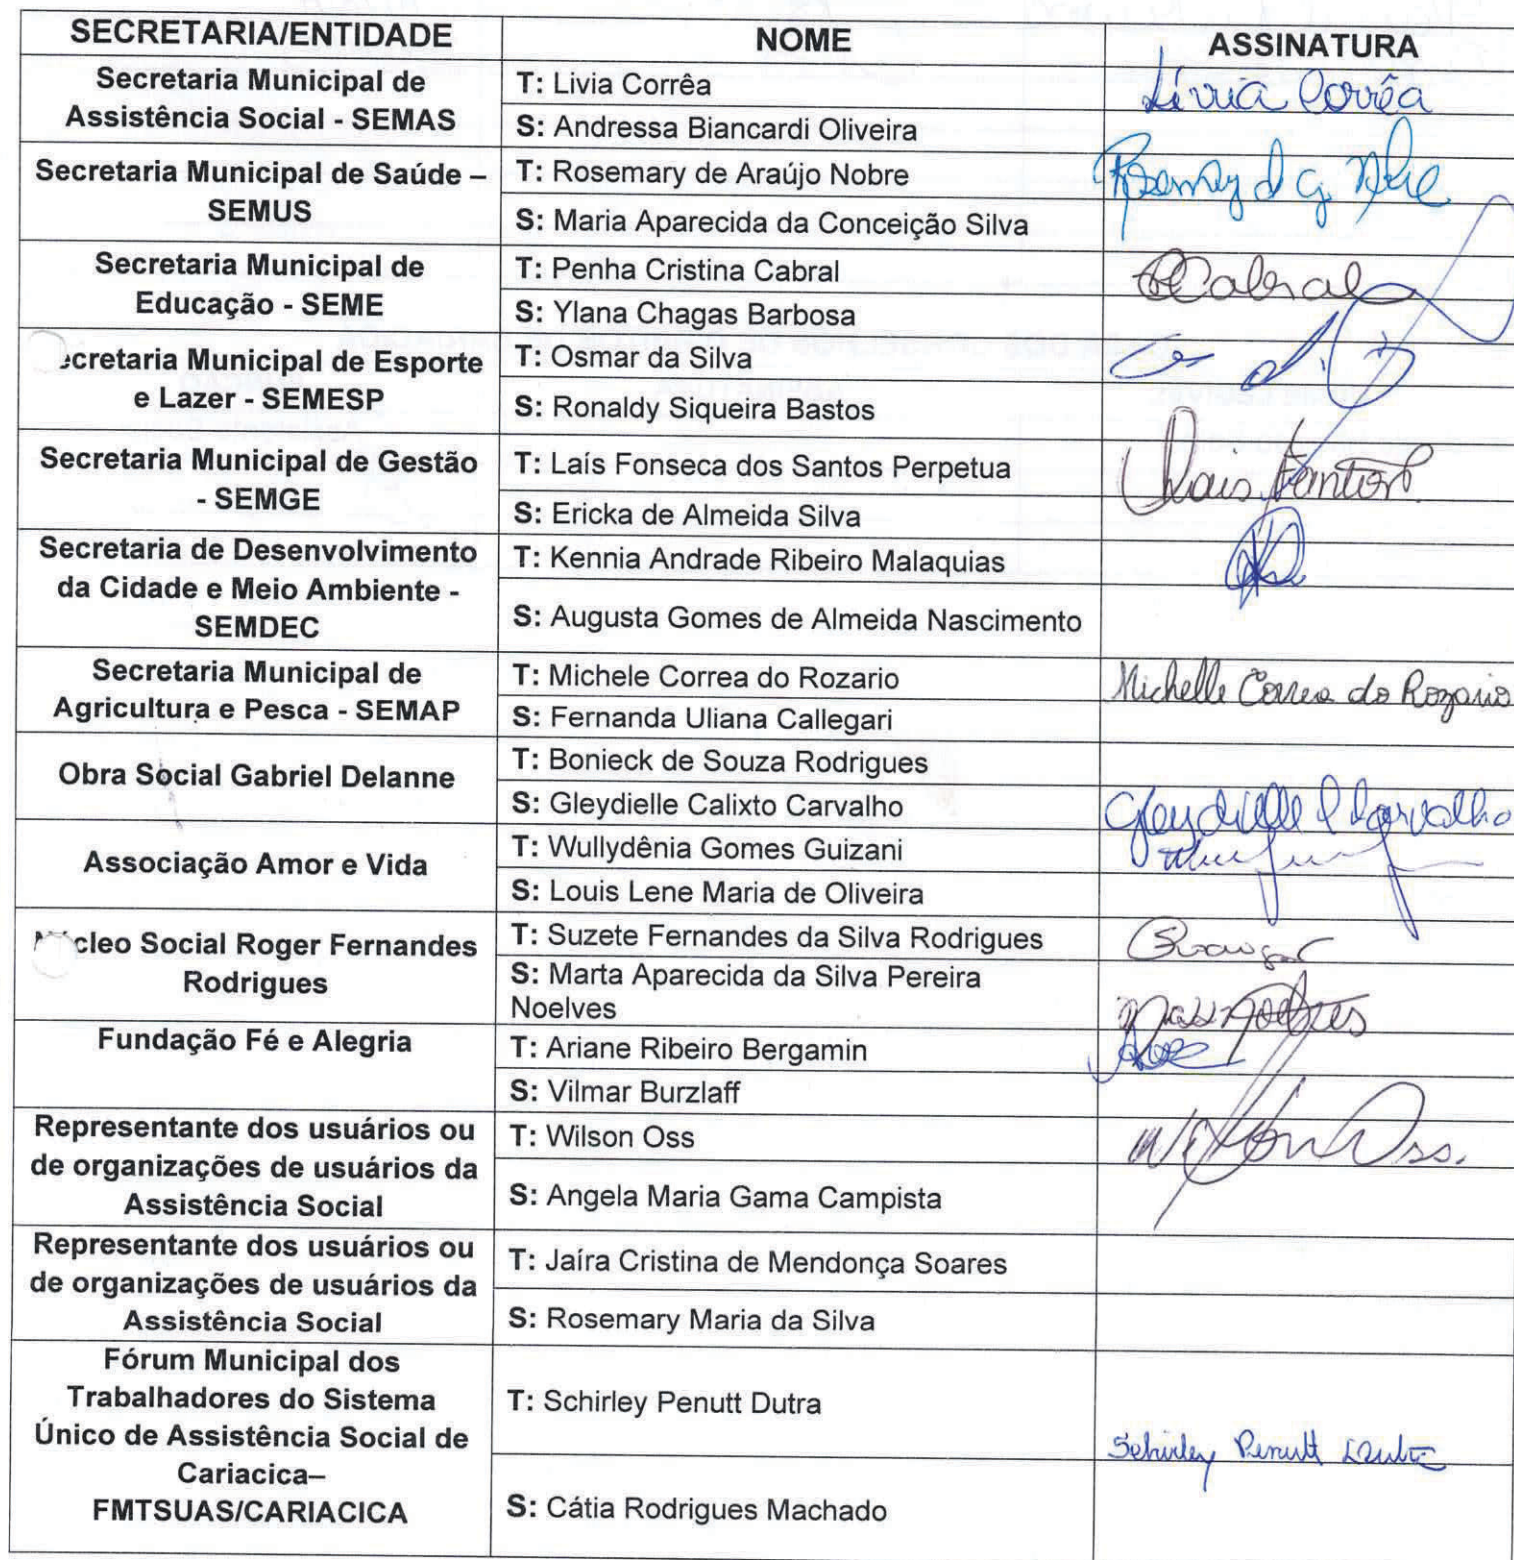 SECRETARIA/ENTIDADE NOME ASSINATURA
Secretaria Municipal de
Assistência Social - SEMAS
T: Livia Corrêa
Lívia Corrêa
S: Andressa Biancardi Oliveira
Secretaria Municipal de Saúde –
SEMUS
T: Rosemary de Araújo Nobre
S: Maria Aparecida da Conceição Silva
Secretaria Municipal de
Educação - SEME
T: Penha Cristina Cabral
Cabral
S: Ylana Chagas Barbosa
ecretaria Municipal de Esporte
e Lazer - SEMESP
T: Osmar da Silva
S: Ronaldy Siqueira Bastos
Secretaria Municipal de Gestão
- SEMGE
T: Laís Fonseca dos Santos Perpetua
S: Ericka de Almeida Silva
Secretaria de Desenvolvimento
da Cidade e Meio Ambiente -
SEMDEC
T: Kennia Andrade Ribeiro Malaquias
S: Augusta Gomes de Almeida Nascimento
Secretaria Municipal de
Agricultura e Pesca - SEMAP
T: Michele Correa do Rozario
Michelle Correa do Rozario
S: Fernanda Uliana Callegari
Obra Social Gabriel Delanne
T: Bonieck de Souza Rodrigues
S: Gleydielle Calixto Carvalho
Gleydielle C Carvalho
Associação Amor e Vida
T: Wullydênia Gomes Guizani
S: Louis Lene Maria de Oliveira
cleo Social Roger Fernandes
Rodrigues
T: Suzete Fernandes da Silva Rodrigues
S: Marta Aparecida da Silva Pereira
Noelves
Fundação Fé e Alegria
T: Ariane Ribeiro Bergamin
S: Vilmar Burzlaff
Representante dos usuários ou
de organizações de usuários da
Assistência Social
T: Wilson Oss
Wilson Oss.
S: Angela Maria Gama Campista
Representante dos usuários ou
de organizações de usuários da
Assistência Social
T: Jaíra Cristina de Mendonça Soares
S: Rosemary Maria da Silva
Fórum Municipal dos
Trabalhadores do Sistema
Único de Assistência Social de
Cariacica–
FMTSUAS/CARIACICA
T: Schirley Penutt Dutra
Schirley Penutt Dutra
S: Cátia Rodrigues Machado